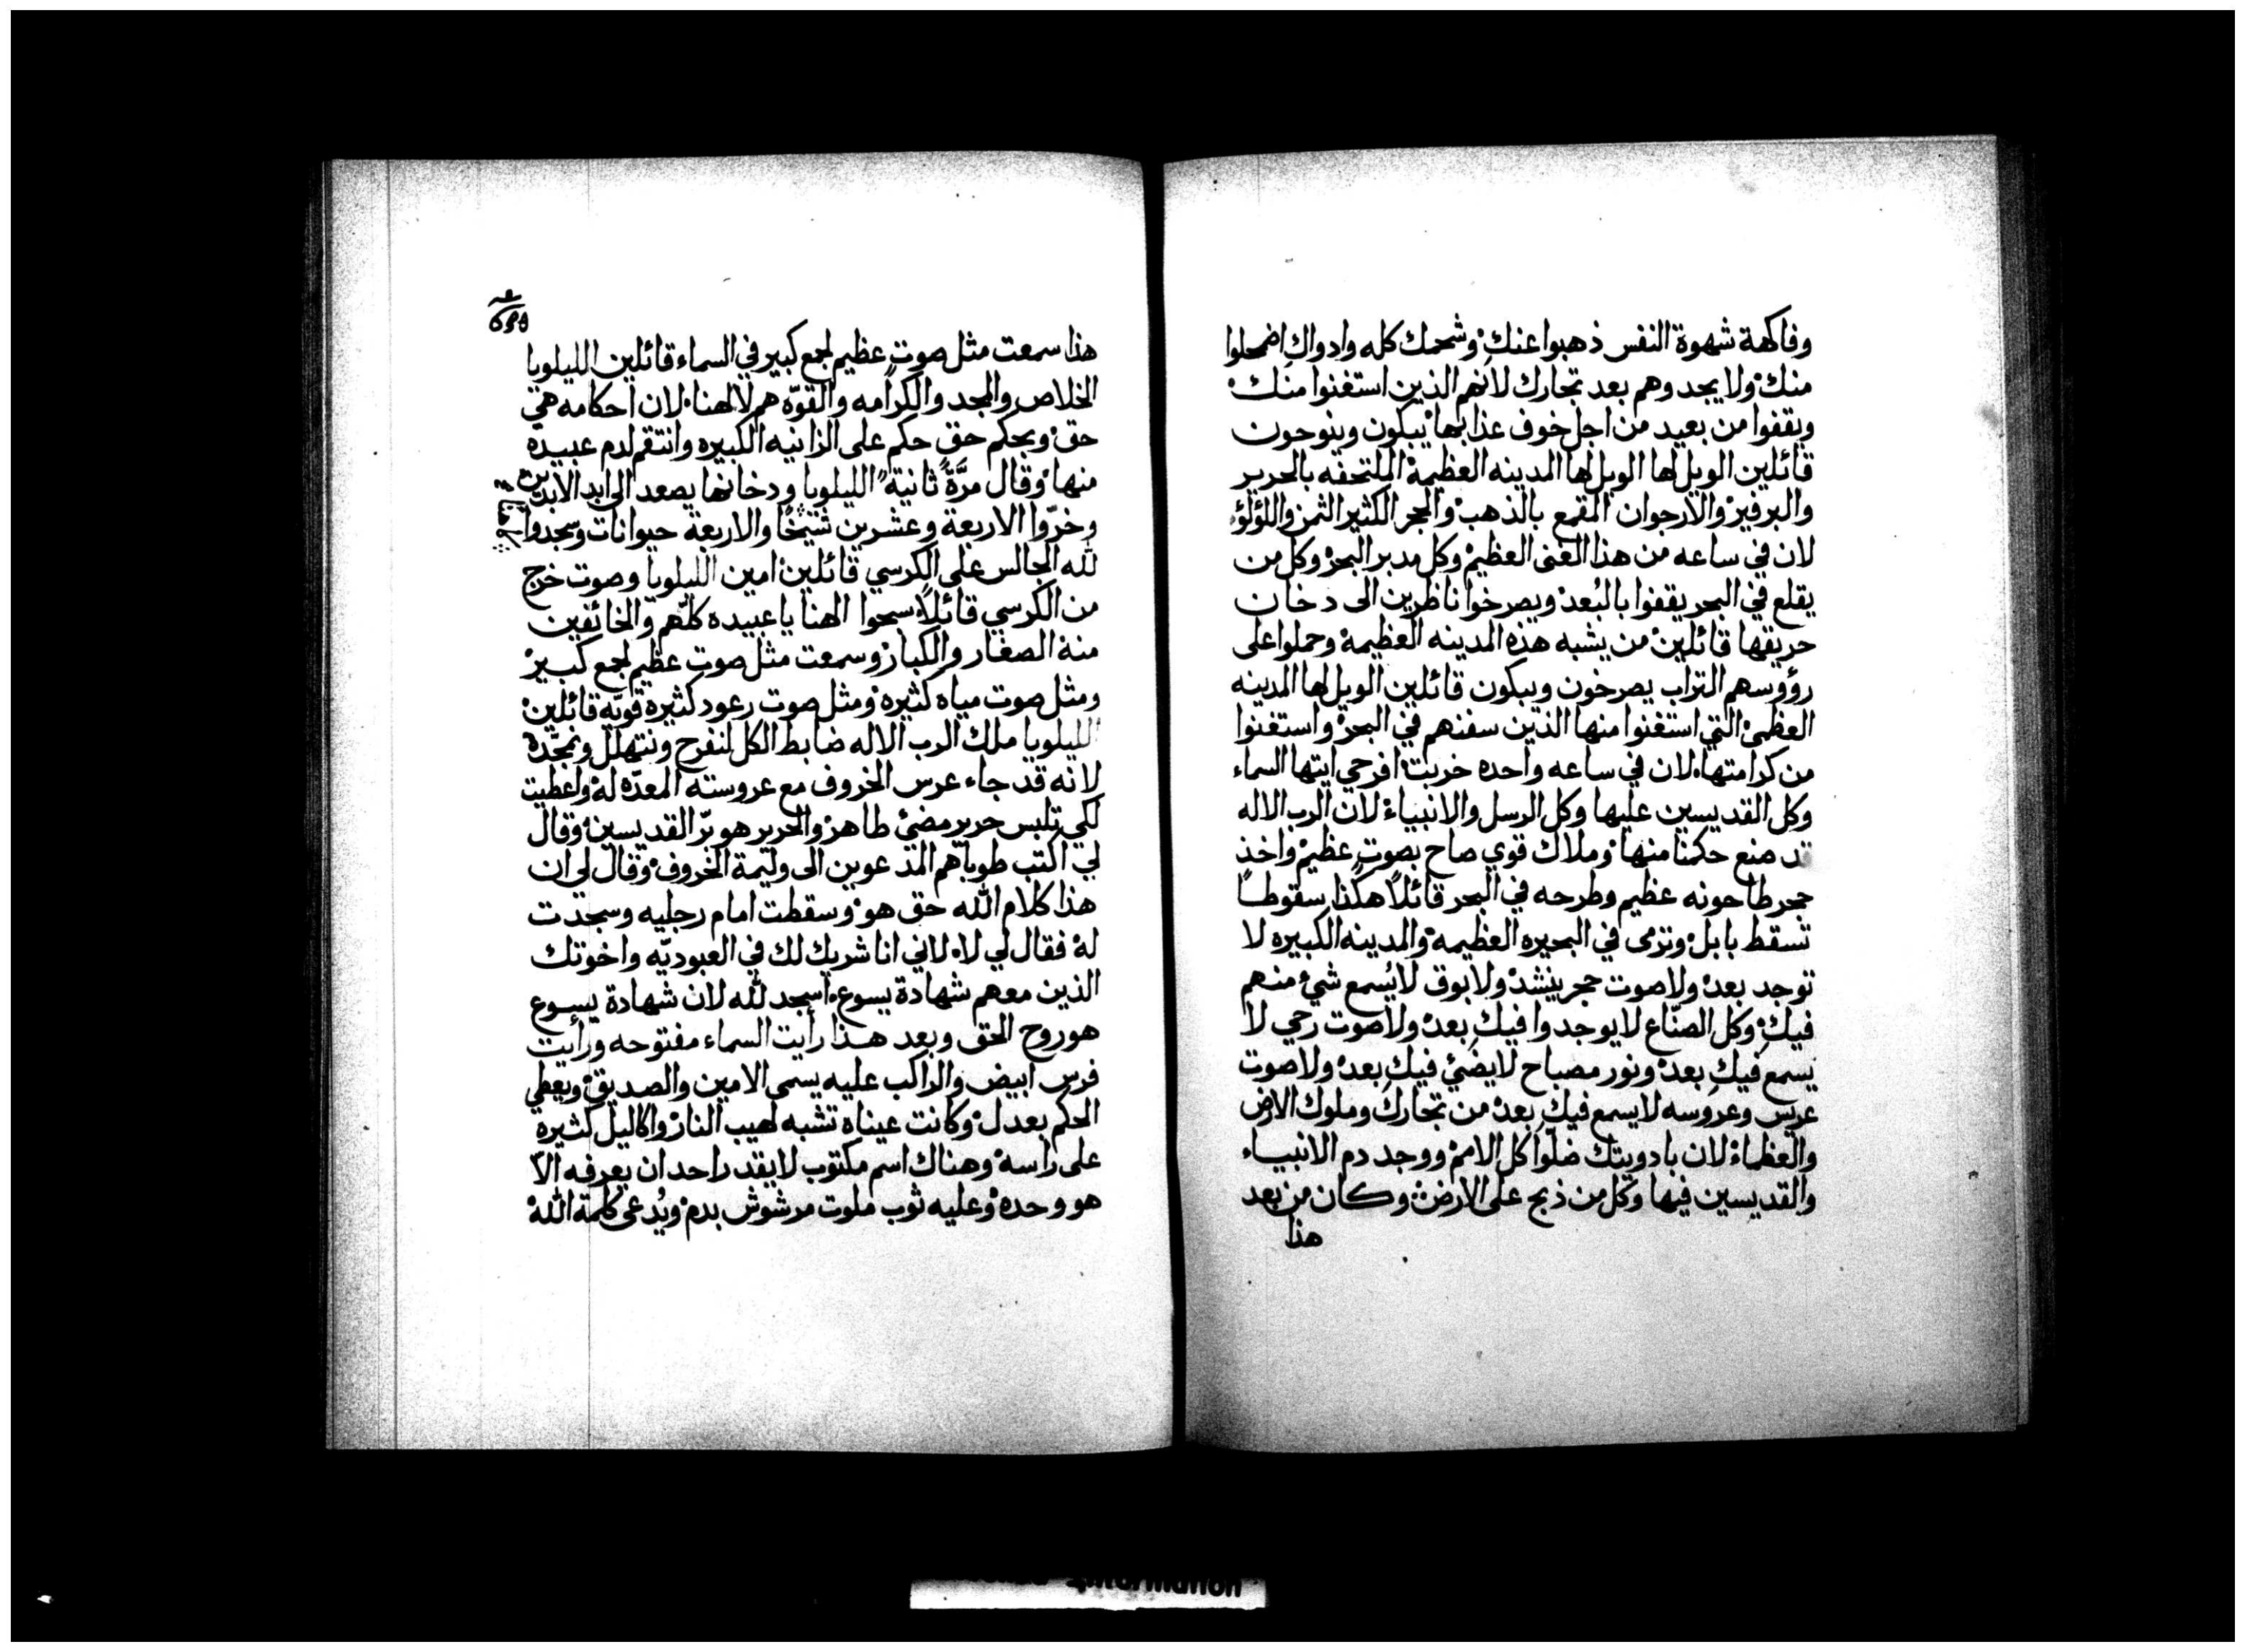 وفاكهة شهوة النفس ذهبوا عنكِ وشحمك كله وادواك اضمحلوا
منك ولا يجدوهم بعد تجارك لانهم الذين استغنوا منك
ويقفوا من بعيد من اجل خوف عذابها يبكون وينوحون
قائلين الويل لها الويل لها المدينه العظيمة الملتحفه بالحرير
والبرفير والارجوان المقمع بالذهب والحجر الكثير الثمن واللؤلؤ
لان في ساعه من هذا الغنى العظيم وكل مدبر البحر وكل من
يقلع في البحر يقفوا بالبُعد ويصرخوا ناظرين الى دخان
حريقها قائلين من يشبه هذه المدينه العظيمة وحملوا على
رؤوسهم التراب يصرخون ويبكون قائلين الويل لها المدينه
العظمىٰ التي استغنوا منها الذين سفنهم في البحر واستغنوا
من كرامتها لان في ساعه واحده خربت افرحي ايتها السماء
وكل القديسين عليها وكل الرسل والانبياء لان الرب الاله
قد صنع حكمنا منها وملاك قوي صاح بصوتٍ عظيم واخذ
حجر طاحونه عظيم وطرحه في البحر قائلاً هكذا سقوطاً
تسقط بابل وترمى في البحيره العظيمه والمدينه الكبيره لا
توجد بعد ولا صوت حجر ينشد ولا بوق لا يُسمع شيء منهم
فيكِ وكل الصنّاع لا يوجدوا فيكِ بعد ولا صوت رحي لا
يسمع فيكِ بعد ونور مصباح لا يضيُ فيكِ بعد ولا صوت
عريس وعروسه لا يسمع فيكِ بعد من تجاركِ وملوك الارض
والعظماء لان بادويتك ضلّوا كل الامم ووجد دم الانبياء
والقديسين فيها وكل من ذبح على الارض وكان من بعد
هذا
هذا سمعت مثل صوتٍ عظيم لجمع كبير في السماء قائلين الليلويا
الخلاص والمجد والكرامه والقوّه هم لالهنا لان احكامه هي
حق وبحكم حقٍ حكم على الزانيه الكبيره وانتقم لدم عبيده
منها وقال مرَّةً ثانيةً الليلويا ودخانها يصعد الى ابد الابدين
وخرّوا الاربعة وعشرين شيخًا والاربعة حيوانات وسجدوا
لله الجالس على الكرسي قائلين امين الليلويا وصوت خرج
من الكرسي قائلاً سبحوا الهنا يا عبيده كلّهم والخائفين
منه الصغار والكبار وسمعت مثل صوت عظيم لجمع كبير
ومثل صوت مياه كثيره ومثل صوت رعود كثيرة قويّه قائلين
الليلويا ملك الرب الاله ضابط الكل لنفرح ونتهلل ونمجّده
لانه قد جاء عرس الخروف مع عروسته المعدّه له واعطيت
لكي تلبس حرير مضئ طاهر والحرير هو برّ القديسين وقال
لي اكتب طوباهم المدعوين الى وليمة الخروف وقال لي ان
هذا كلام الله حق هو وسقطت امام رجليه وسجدت
له فقال لي لا لاني انا شريك لك في العبوديّه واخوتك
الذين معهم شهادة يسوع اسجد لله لان شهادة يسوع
هو روح الحق وبعد هذا رأيت السماء مفتوحه ورأيت
فرس ابيض والراكب عليه يسمى الامين والصديق ويعطي
الحكم بعدل وكانت عيناه تشبه لهيب النار واكاليل كثيره
على راسه وهناك اسم مكتوب لا يقدر احد ان يعرفه الاّ
هو وحده وعليه ثوب ملوت مرشوش بدم ويُدعى كلمة الله